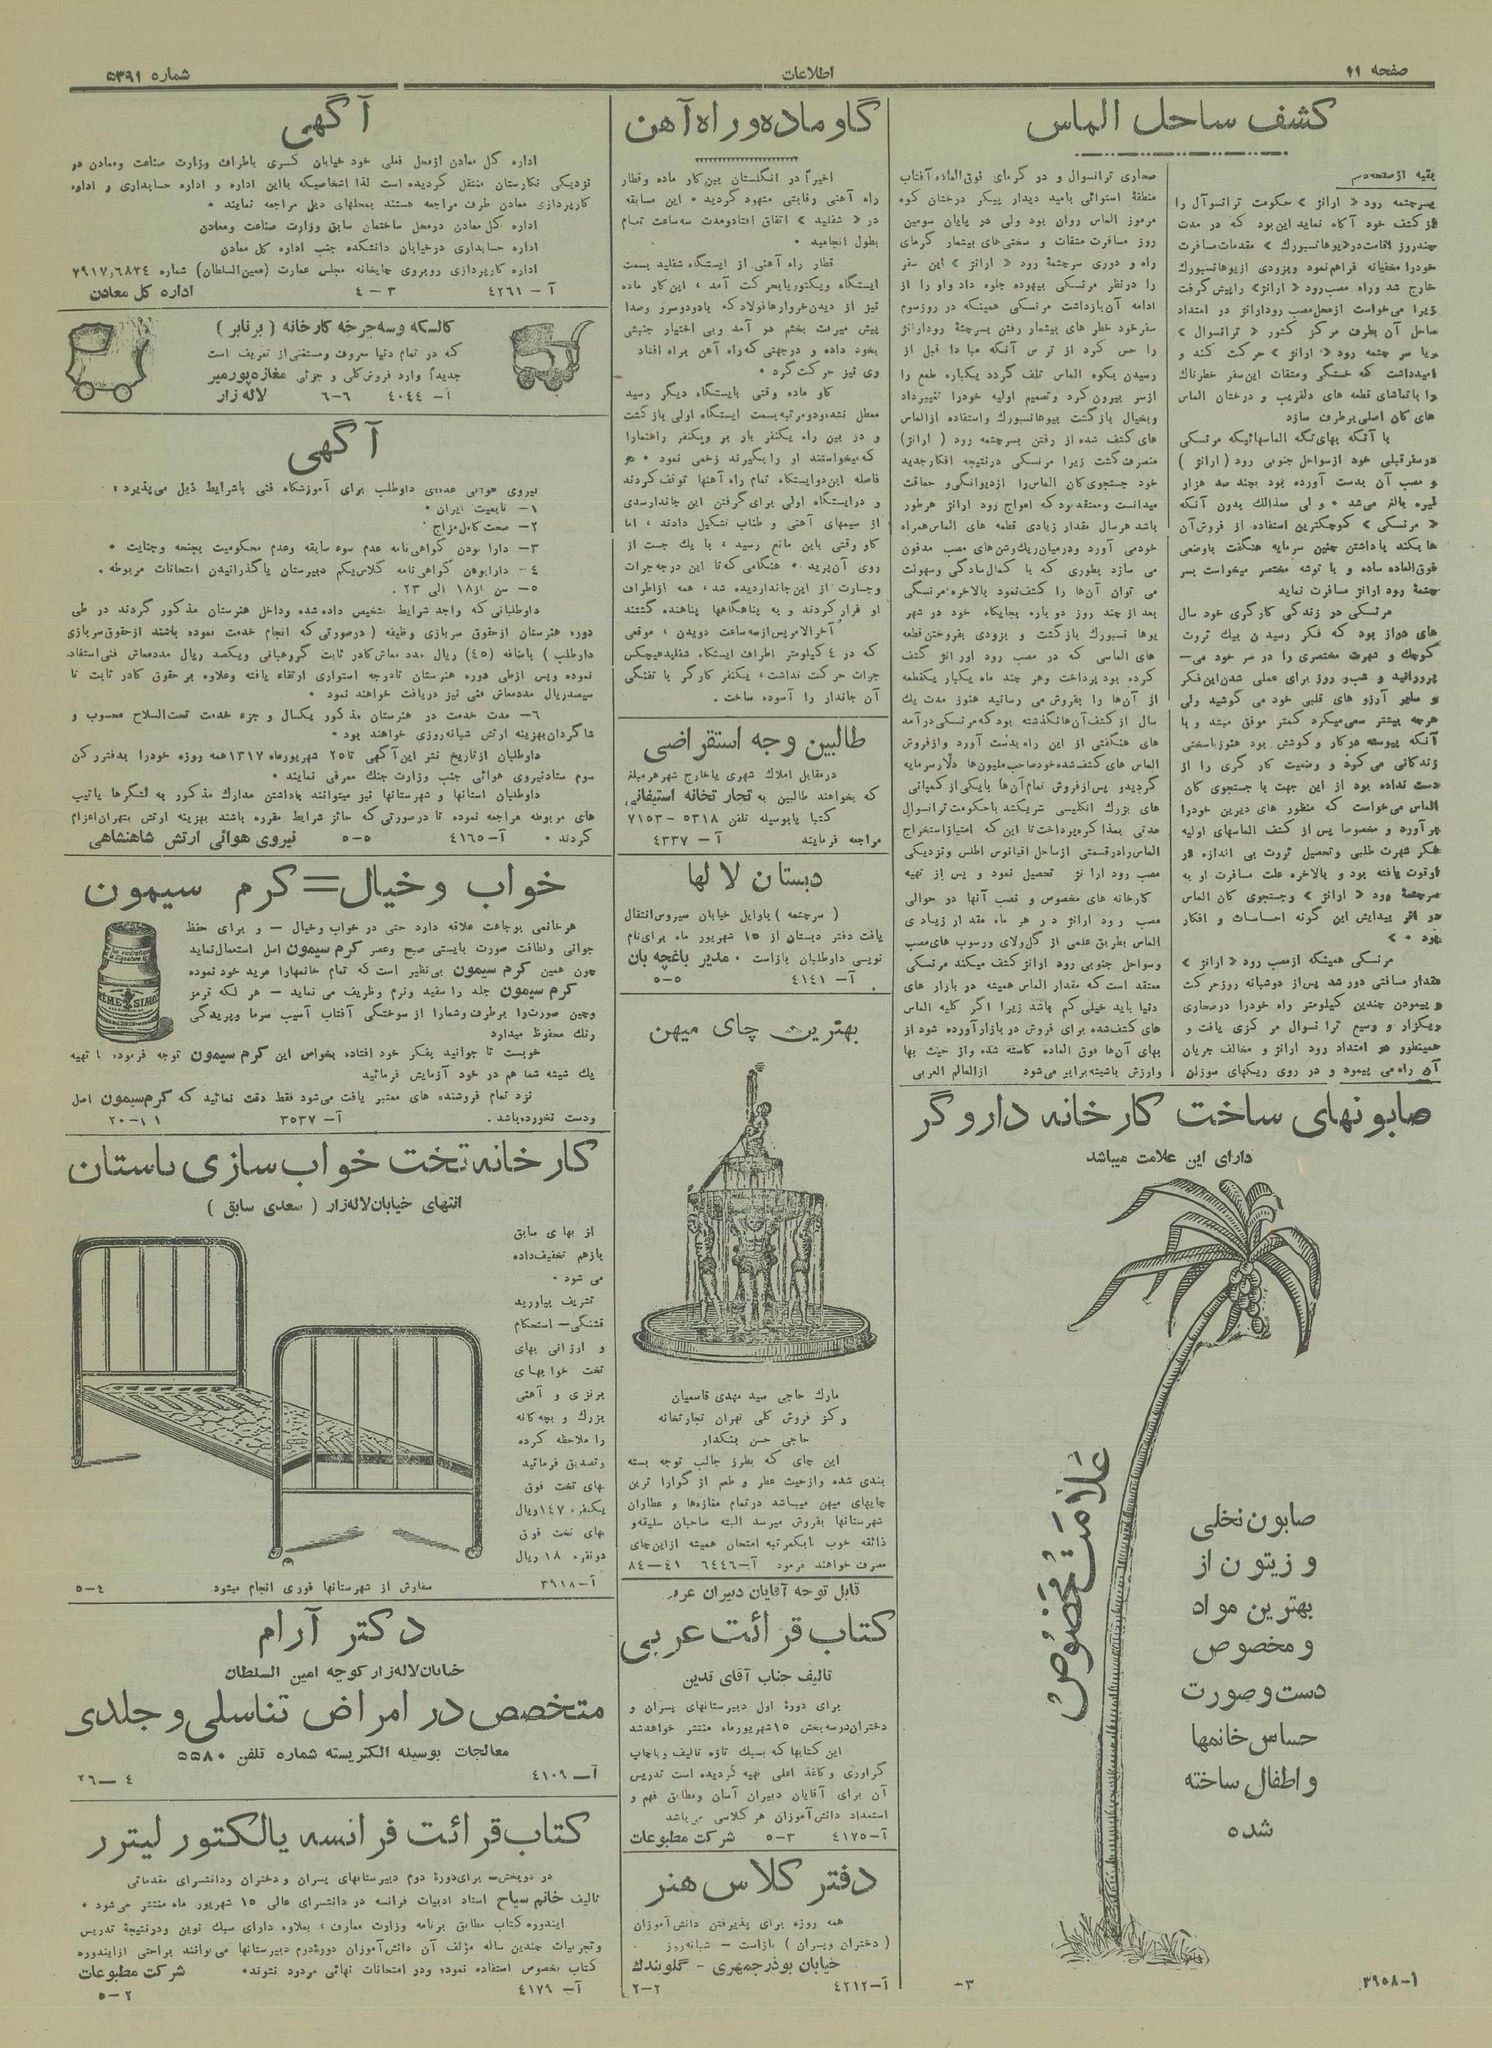 صفحه ۱۱
اطلاعات
شماره ۵۳۹۱
کشف ساحل الماس
بقیه از صفحه دم
بسرچشمه رود « ارانژ » حکومت ترانسوآل را
از کشف خود آگاه نماید این بود که در مدت
چند روز اقامت در « یوهانسبورک » مقدمات مسافرت
خود را مخفیانه فراهم نمود و بزودی از یوهانسبورك
خارج شد و راه مصب رود « ارانژ » را پیش گرفت
زیرا میخواست از محل مصب رود ارانژ در امتداد
ساحل آن بطرف مرکز کشور « ترانسوال »
و یا سر چشمه رود « ارانژ » حرکت کند و
امید داشت که خستگی و مشقات این سفر خطرناك
را با تماشای قطعه های دلفریب و درختان الماس
های کان اصلی برطرف سازد
با آنکه بهای تکه الماسهائیکه مرنسکی
در سفر قبلی خود از سواحل جنوبی رود ( ارانژ )
و مصب آن بدست آورده بود بچند صد هزار
لیره بالغ می‌شد • و لی معذالك بدون آنکه
« مرنسکی » کوچکترین استفاده از فروش آن
ها بکند با داشتن چنین سرمایه هنگفت با وضعی
فوق‌العاده ساده و با توشه مختصر میخواست بسر
چشمهٔ رود ارانژ مسافرت نماید
مرنسکی در زندگی کارگری خود سال
های دراز بود که فکر رسیدن بیك ثروت
کوچك و شهرت مختصری را در سر خود می‌—
پرورانید و شب و روز برای عملی شدن این فکر
و سایر آرزو های قلبی خود می کوشید ولی
هرچه بیشتر سعی میکرد کمتر موفق میشد و با
آنکه پیوسته در کار و کوشش بود هنوز بسختی
زندگانی می‌کرد و وضعیت کار گری را از
دست نداده بود از این جهت با جستجوی کان
الماس می‌خواست که منظور های دیرین خود را
بر آورد و مخصوصا پس از کشف الماسهای اولیه
فکر شهرت طلبی و تحصیل ثروت بی اندازه در
او قوت یافته بود و بالاخره علت مسافرت او به
سرچشمهٔ رود « ارانژ » و جستجوی کان الماس
در اثر پیدایش این گونه احساسات و افکار
بود • »
مرنسکی همینکه از مصب رود « ارانژ »
مقدار مسافتی دور شد پس از دو شبانه روز حرکت
و پیمودن چندین کیلومتر راه خود را در صحاری
ریگزار و وسیع ترا نسوال مر کزی یافت و
همینطور در امتداد رود ارانژ و مخالف جریان
آن راه می پیمود و در روی ریگهای سوزان
صحاری ترانسوال و در گرمای فوق‌العاده آفتاب
منطقهٔ استوائی بامید دیدار پیکر درختان کوه
مرموز الماس روان بود ولی در پایان سومین
روز مسافرت مشقات و سختی‌های بیشمار گرمای
راه و دوری سرچشمهٔ رود « ارانژ » این سفر
را در نظر مرنسکی بیهوده جلوه داد و او را از
ادامه آن بازداشت مرنسکی همینکه در روز سوم
سفر خود خطر های بیشمار رفتن بسرچشمهٔ رود ارانژ
را حس کرد از ترس آنکه مبادا قبل از
رسیدن بکوه الماس تلف گردد یکباره طمع را
از سر بیرون کرد و تصمیم اولیه خود را تغییر داد
و بخیال بازگشت بیوهانسبورك و استفاده از الماس
های کشف شده از رفتن بسرچشمه رود ( ارانژ )
منصرف گشت زیرا مرنسکی در نتیجه افکار جدید
خود جستجوی کان الماس را از دیوانگی و حماقت
میدانست و معتقد بود که امواج رود ارانژ هرطور
باشد هر سال مقدار زیادی قطعه های الماس همراه
خود می آورد و در میان ریك و شن‌های مصب مدفون
می سازد بطوری که با کمال سادگی و سهولت
می توان آن‌ها را کشف نمود بالاخره مرنسکی
بعد از چند روز دوباره بجایگاه خود در شهر
یوها نسبورك بازگشت و بزودی بفروختن قطعه
های الماسی که در مصب رود اورانژ کشف
کرده بود پرداخت و هر چند ماه یکبار یکقطعه
از آن‌ها را بفروش می رسانید هنوز مدت یك
سال از کشف آن‌ها نگذشته بود که مرنسکی در آمد
های هنگفتی از این راه بدست آورد و از فروش
الماس های کشف شده خود صاحب ملیون‌ها دلار سرمایه
گردید و پس از فروش تمام آن‌ها با یکی از کمپانی
های بزرك انگلیسی شریك شد با حکومت ترانسوال
مدتی بمذاکره پرداخت تا این که امتیاز استخراج
الماس را در قسمتی از ساحل اقیانوس اطلس و نزدیکی
مصب رود ارا نژ تحصیل نمود و پس از تهیه
کارخانه های مخصوص و نصب آنها در حوالی
مصب رود ارانژ در هر ماه مقدار زیادی
الماس بطریق علمی از گل و لای و رسوب های مصب
و سواحل جنوبی رود ارانژ کشف میکند مرنسکی
معتقد است که مقدار الماس همیشه در بازار های
دنیا باید خیلی کم باشد زیرا اگر کلیه الماس
های کشف شده برای فروش در بازار آورده شود از
بهای آن‌ها فوق العاده کاسته شده و از حیث بها
و ارزش باشیشه برابر می‌شود از العالم العربی
صابونهای ساخت کارخانه داروگر
دارای این علامت میباشد
علامت مخصوص
صابون نخلی
و زیتون از
بهترین مواد
و مخصوص
دست و صورت
حساس خانمها
و اطفال ساخته
شده
آ-۳۹۵۸
۳-
گاو ماده و راه آهن
اخیراً در انگلستان بین گاو ماده و قطار
راه آهنی رقابتی مشهود گردید • این مسابقه
در « شفلید » اتفاق افتاد و مدت سه ساعت تمام
بطول انجامید •
قطار راه آهنی از ایستگاه شفلید بسمت
ایستگاه ویکتوریا بحرکت آمد ، این گاو ماده
نیز از دیدن خروارها فولاد که با دود و سر و صدا
پیش میرفت بخشم در آمد و بی اختیار جنبشی
بخود داده و در جهتی که راه آهن براه افتاد
وی نیز حرکت کرد •
گاو ماده وقتی بایستگاه دیگر رسید
معطل نشده و دو مرتبه بسمت ایستگاه اولی بازگشت
و در بین راه یکنفر بار بر و یکنفر راهنما را
که میخواستند او را بگیرند زخمی نمود • در
فاصله این دو ایستگاه تمام راه آهنها توقف کردند
و در ایستگاه اولی برای گرفتن این جاندار سدی
از سیمهای آهنی و طناب تشکیل دادند ، اما
گاو وقتی باین مانع رسید ، با یك جست از
روی آن پرید • هنگامی که تا این درجه جرات
و جسارت از این جاندار دیده شد ، همه از اطراف
او فرار کردند و به پناهگاهها پناهنده گشتند
آخر الامر پس از سه ساعت دویدن ، موقعی
که در ٤ کیلومتر اطراف ایستگاه شفلید هیچکس
جرات حرکت نداشت ، یکنفر کارگر با تفنگی
آن جاندار را آسوده ساخت .
طالبین وجه استقراضی
در مقابل املاك شهری یا خارج شهر هر مبلغ
که بخواهند طالبین به تجار تخانه استیفانی
کتبا یا بوسیله تلفن ۵۳۱۸ - ۷۱۵۳
مراجعه فرمایند آ - ٤۳۳۷
دبستان لالها
( سرچشمه ) باوایل خیابان سیروس انتقال
یافت دفتر دبستان از ۱۵ شهریور ماه برای نام
نویسی داوطلبان باز است . مدیر باغچه بان
آ- ٤۱٤۱ ۵-۵
بهترین چای میهن
مارك حاجی سید مهدی قاسمیان
مرکز فروش کلی تهران تجارتخانه
حاجی حسن بنکدار
این چای که بطرز جالب توجه بسته
بندی شده و از حیث عطر و طعم از گوارا ترین
چایهای میهن میباشد در تمام مغازه‌ها و عطاران
شهرستانها بفروش میرسد البته صاحبان سلیقه و
ذائقه خوب با یکمرتبه امتحان همیشه از این چای
مصرف خواهند فرمود آ-٦٤٤٦ ٤۱-۸٤
قابل توجه آقایان دبیران عربی
کتاب قرائت عربی
تالیف جناب آقای تدین
برای دورهٔ اول دبیرستانهای پسران و
دختران در سه بخش ۱۵ شهریور ماه منتشر خواهد شد
این کتابها که بسبك تازه تالیف و با چاپ
گراوری و کاغذ اعلی تهیه گردیده است تدریس
آن برای آقایان دبیران آسان و مطابق فهم و
استعداد دانش آموزان هر کلاسی می باشد
آ-٤۱۷۵ ۳-۵ شرکت مطبوعات
دفتر کلاس هنر
همه روزه برای پذیرفتن دانش آموزان
( دختران و پسران ) باز است – شبانه روز
خیابان بوذرجمهری – گلوبندك
آ-٤۲۱۲ ۲-۲
آگهی
اداره کل معادن از محل فعلی خود خیابان کسری باطراف وزارت صناعت و معادن در
نزدیکی نگارستان منتقل گردیده است لذا اشخاصیکه با این اداره و اداره حسابداری و اداره
کارپردازی معادن طرف مراجعه هستند بمحلهای ذیل مراجعه نمایند •
اداره کل معادن در محل ساختمان سابق وزارت صناعت و معادن
اداره حسابداری در خیابان دانشکده جنب اداره کل معادن
اداره کارپردازی روبروی چاپخانه مجلس عمارت (معین السلطان) شماره ۷۹۱۷,٦۸۲٤
آ - ٤۲٦۱ ۳-٤ اداره کل معادن
کالسکه و سه چرخه کارخانه ( برنابر )
که در تمام دنیا معروف و مستغنی از تعریف است
جدیداً وارد فروش کلی و جزئی مغازه پورمیر
آ- ٤۰٤٤ ٦-٦ لاله زار
آگهی
نیروی هوائی عده‌ی داوطلب برای آموزشگاه فنی باشرایط ذیل می پذیرد :
۱- تابعیت ایران •
۲- صحت کامل مزاج •
۳- دارا بودن گواهی نامه عدم سوء سابقه و عدم محکومیت بجنحه و جنایت •
٤- دارا بودن گواهی نامه کلاس یکم دبیرستان یا گذرانیدن امتحانات مربوطه .
۵- سن از ۱۸ الی ۲۳ .
داوطلبانی که واجد شرایط تشخیص داده شده و داخل هنرستان مذکور گردند در طی
دوره هنرستان از حقوق سربازی وظیفه ( در صورتی که انجام خدمت نموده باشند از حقوق سربازی
داوطلب ) باضافه (٤۵) ریال مدد معاش کادر ثابت گروهبانی و یکصد ریال مدد معاش فنی استفاده
نموده و پس از طی دوره هنرستان تا درجه استواری ارتقاء یافته و علاوه بر حقوق کادر ثابت تا
سیصد ریال مدد معاش فنی نیز دریافت خواهند نمود •
٦- مدت خدمت در هنرستان مذکور یکسال و جزء خدمت تحت السلاح محسوب و
شاگردان بهزینه ارتش شبانه روزی خواهند بود •
داوطلبان از تاریخ نشر این آگهی تا ۲۵ شهریور ماه ۱۳۱۷ همه روزه خود را بدفتر رکن
سوم ستاد نیروی هوائی جنب وزارت جنك معرفی نمایند •
داوطلبان استانها و شهرستانها نیز میتوانند با داشتن مدارك مذکور به لشگرها یا تیپ
های مربوطه مراجعه نموده تا در صورتی که حائز شرایط مقرره باشند بهزینه ارتش بتهران اعزام
گردند • آ-٤۱٦۵ ۵-۵ نیروی هوائی ارتش شاهنشاهی
خواب و خیال = کرم سیمون
هر خانمی بوجاهت علاقه دارد حتی در خواب و خیال – و برای حفظ
جوانی و لطافت صورت بایستی صبح و عصر کرم سیمون اصل استعمال نماید
چون همین کرم سیمون بی نظیر است که تمام خانمها را مرید خود نموده
کرم سیمون جلد را سفید و نرم و ظریف می نماید – هر لکه قرمز
و چین صورت را برطرف و شما را از سوختگی آفتاب آسیب سرما و پریدگی
رنك محفوظ میدارد
خوبست تا جوانید بفکر خود افتاده بخواص این کرم سیمون توجه فرموده با تهیه
یك شیشه شما هم در خود آزمایش فرمائید
نزد تمام فروشنده های معتبر یافت می‌شود فقط دقت نمائید که کرم سیمون اصل
و دست نخورده باشد . آ- ۳۵۳۷ ۱۱-۲۰
CRÈME SIMON
کارخانه تخت خواب سازی باستان
انتهای خیابان لاله زار ( سعدی سابق )
از بهای سابق
بازهم تخفیف داده
می شود •
تشریف بیاورید
قشنگی – استحکام
و ارزانی بهای
تخت خوابهای
برنزی و آهنی
بزرك و بچه گانه
را ملاحظه کرده
و تصدیق فرمائید
بهای تخت فوق
یکنفره ۱٤۷ ریال
بهای تخت فوق
دو نفره ۱۸۰ ریال
آ-۳۹۱۸ سفارش از شهرستانها فوری انجام میشود ٤-۵
دکتر آرام
خیابان لاله زار کوچه امین السلطان
متخصص در امراض تناسلی و جلدی
معالجات بوسیله الکتریسته شماره تلفن ۵۵۸۰
آ- ٤۱۰۹ ٤-۲٦
کتاب قرائت فرانسه یا لکتور لیترر
در دو بخش – برای دورهٔ دوم دبیرستانهای پسران و دختران و دانشسرای مقدماتی
تالیف خانم سیاح استاد ادبیات فرانسه در دانشسرای عالی ۱۵ شهریور ماه منتشر می‌شود •
ایندوره کتاب مطابق برنامه وزارت معارف ، بعلاوه دارای سبك نوین و در نتیجهٔ تدریس
و تجربیات چندین ساله مؤلف آن دانش آموزان دورهٔ دوم دبیرستانها می‌توانند براحتی از ایندوره
کتاب بخصوص استفاده نموده و در امتحانات نهائی مردود نشوند • شرکت مطبوعات
آ- ٤۱۷۹ ۲-۵